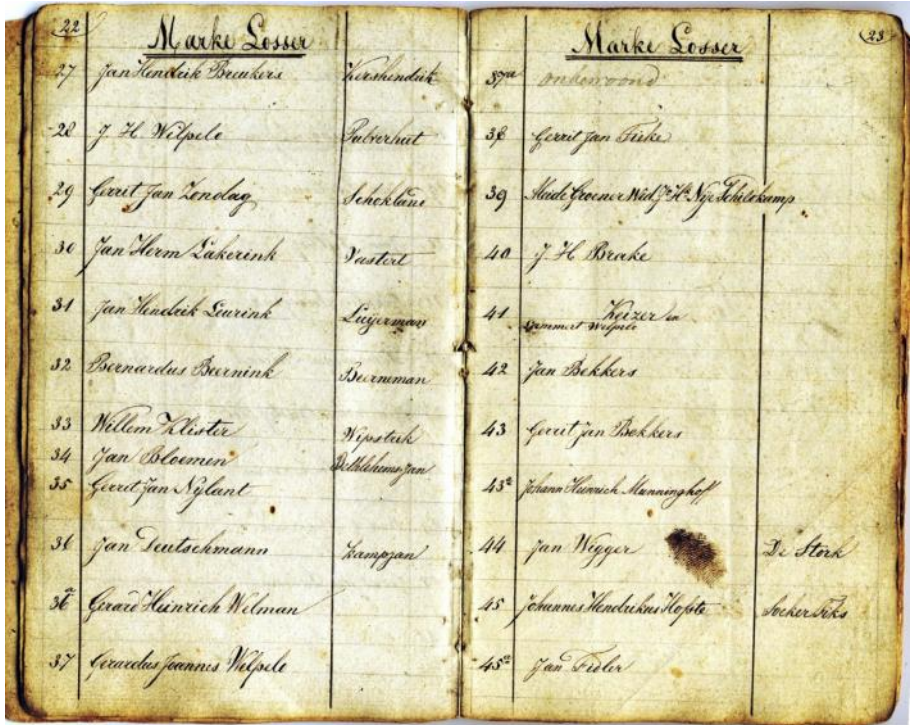 22
Marke Losser
27 Jan Hendrik Breukers Kershendrik
28 J. H. Welpelo Pulverhut
29 Gerrit Jan Zondag Schoklane
30 Jan Herm Lakerink Vastert
31 Jan Hendrik Leurink Luijerman
32 Bernardus Beernink Beerneman
33 Willem Klister Wipstrik
34 Jan Bloemen Bethlehems Jan
35 Gerret Jan Nylant
36 Jan Deutschmann Kampjan
36a Gerard Heinrich Welman
37 Gerardus Joannes Welpelo
23
Marke Losser
37a onbewoond
38 Gerrit Jan Fieke
39 Aleida Groener Wed. Jn. Hk. Nije Schildkamp
40 J. H. Brake
41 Keizer en
Lammert Welpelo
42 Jan Bekkers
43 Gerrit Jan Bekkers
43a Johann Heinrich Munninghoff
44 Jan Wigger De Stork
45 Johannes Hendrikus Hofste Soeker Fiks
45a Jan Fidler